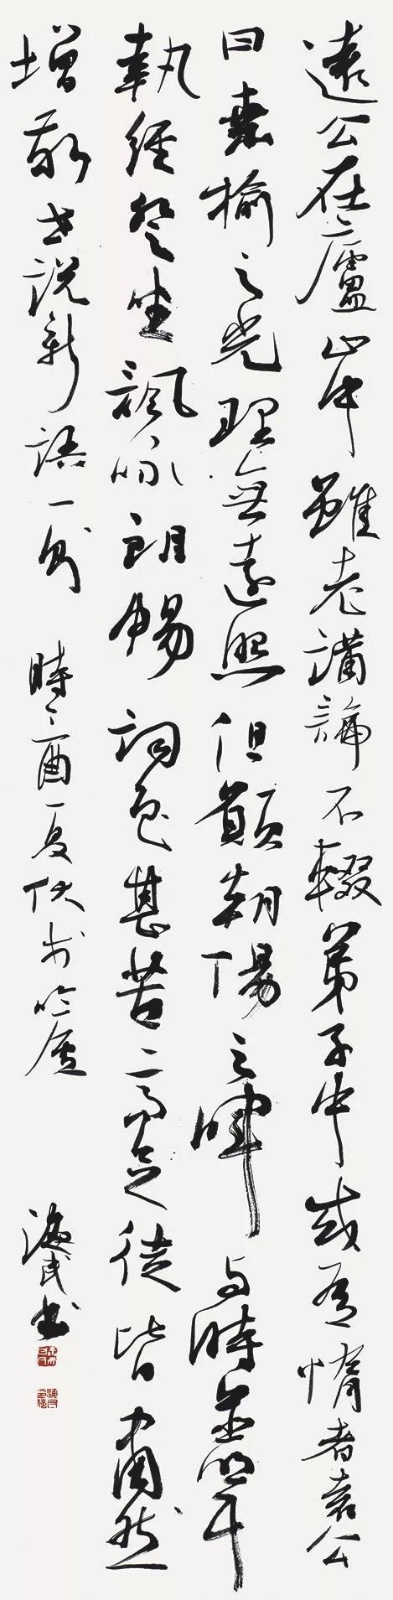 遠公在廬山中雖老講論不輟弟子中或有惰者遠公
曰桑榆之光理無遠照但願朝陽之暉與時並明耳
執經登坐諷詠朗暢詞色甚苦高足之徒皆肅然
增敬世說新語一則 時丁酉夏伏於吟廬 海民書